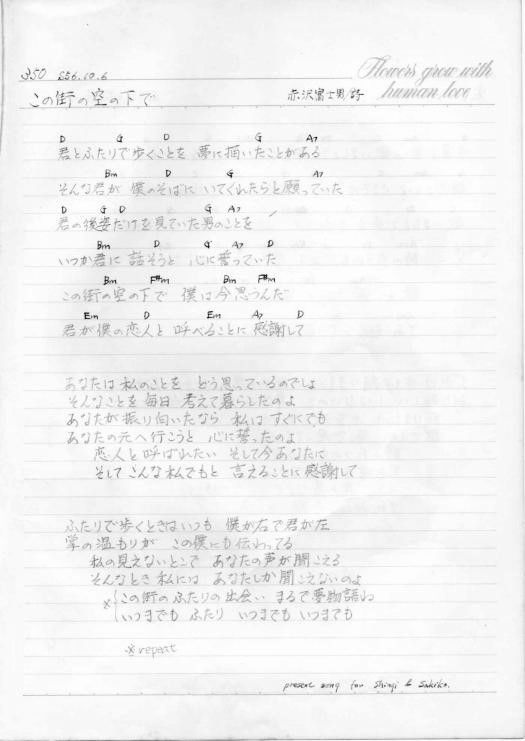 350 S56.10.6
Flowers grow with
human love
この街の空の下で 赤沢富士男/詩
D G D G A7
君とふたりで歩くことを 夢に描いたことがある
Bm D G A7
そんな君が 僕のそばに いてくれたらと願っていた
D G D G A7
君の後姿だけを見ていた男のことを
Bm D G A7 D
いつか君に 話そうと 心に誓っていた
Bm F#m Bm F#m
この街の空の下で 僕は今思うんだ
Em D Em A7 D
君が僕の恋人と 呼べることに感謝して
あなたは私のことを どう思っているのでしょ
そんなことを毎日 考えて暮らしたのよ
あなたが振り向いたなら 私はすぐにでも
あなたの元へ行こうと 心に誓ったのよ
恋人と呼ばれたい そして今あなたに
そしてこんな私でもと 言えることに感謝して
ふたりで歩くときはいつも 僕が右で君が左
掌の温もりが この僕にも伝わってる
私の見えないとこで あなたの声が聞こえる
そんなとき私には あなたしか聞こえないのよ
※ この街のふたりの出会い まるで夢物語ね
いつまでも ふたり いつまでも いつまでも
※ repeat
present song for Shingi & Sakiko.